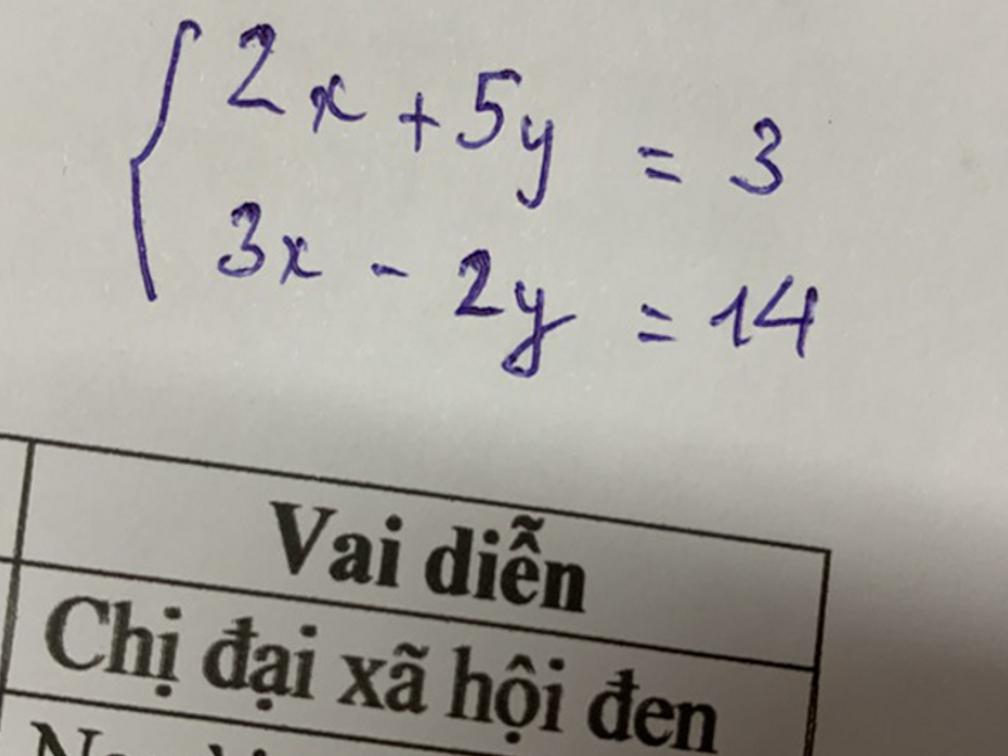 2x + 5y = 3
3x - 2y = 14
Vai diễn
Chị đại xã hội đen